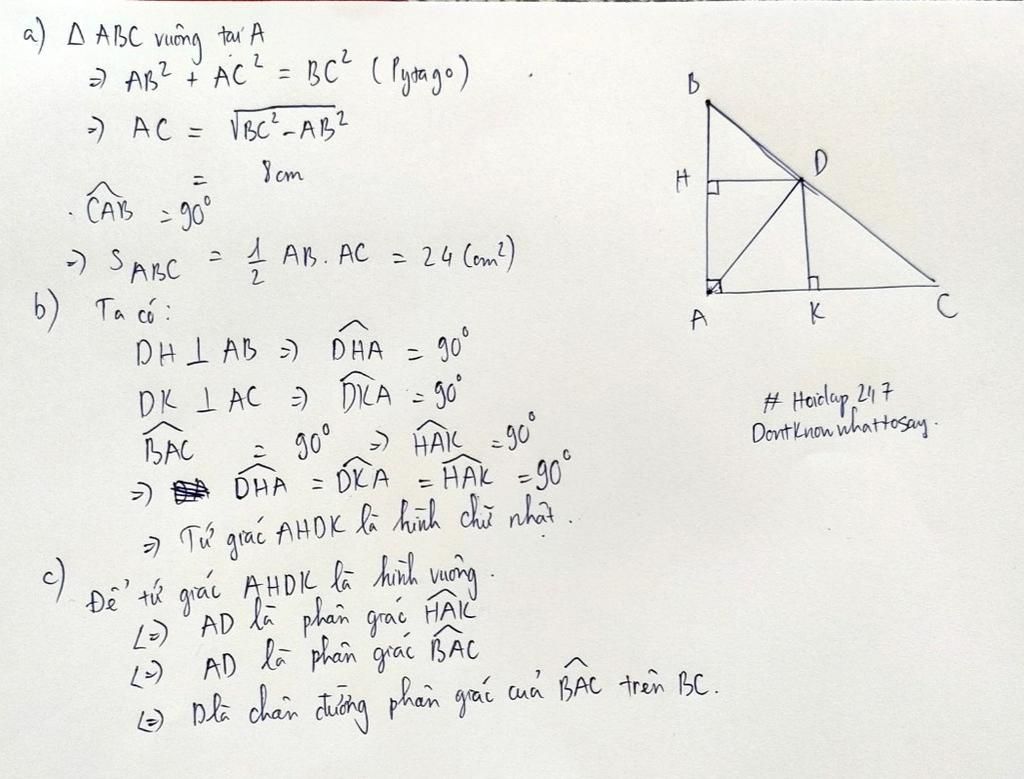 a) Δ ABC vuông tại A
=> AB² + AC² = BC² (Pytago)
=> AC = √BC² - AB²
= 8cm
. CAB̂ = 90°
=> S ABC = 1/2 AB. AC = 24 (cm²)
b) Ta có:
DH ⊥ AB => DHÂ = 90°
DK ⊥ AC => DKÂ = 90°
BAĈ = 90° => HAK̂ = 90°
=> DHÂ = DKÂ = HAK̂ = 90°
=> Tứ giác AHDK là hình chữ nhật.
c) Để tứ giác AHDK là hình vuông.
(=) AD là phân giác HAK̂
(=) AD là phân giác BAĈ
(=) D là chân đường phân giác của BAĈ trên BC.
B
H
D
A
K
C
# Hoidap 247
DontKnowwhattosay.